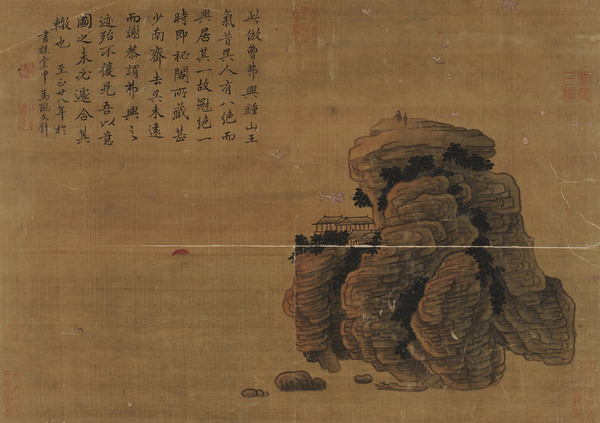 此倣曹弗興鍾山王
氣昔吳人有八絕而
興居其一故冠絕一
時即秘閣所藏甚
少南齊去吳未遠
而謝恭謂弗興之
迹殆不復見吾以意
圖之未必遽合其
轍也 至正廿八年於
書堂中馬琬文璧